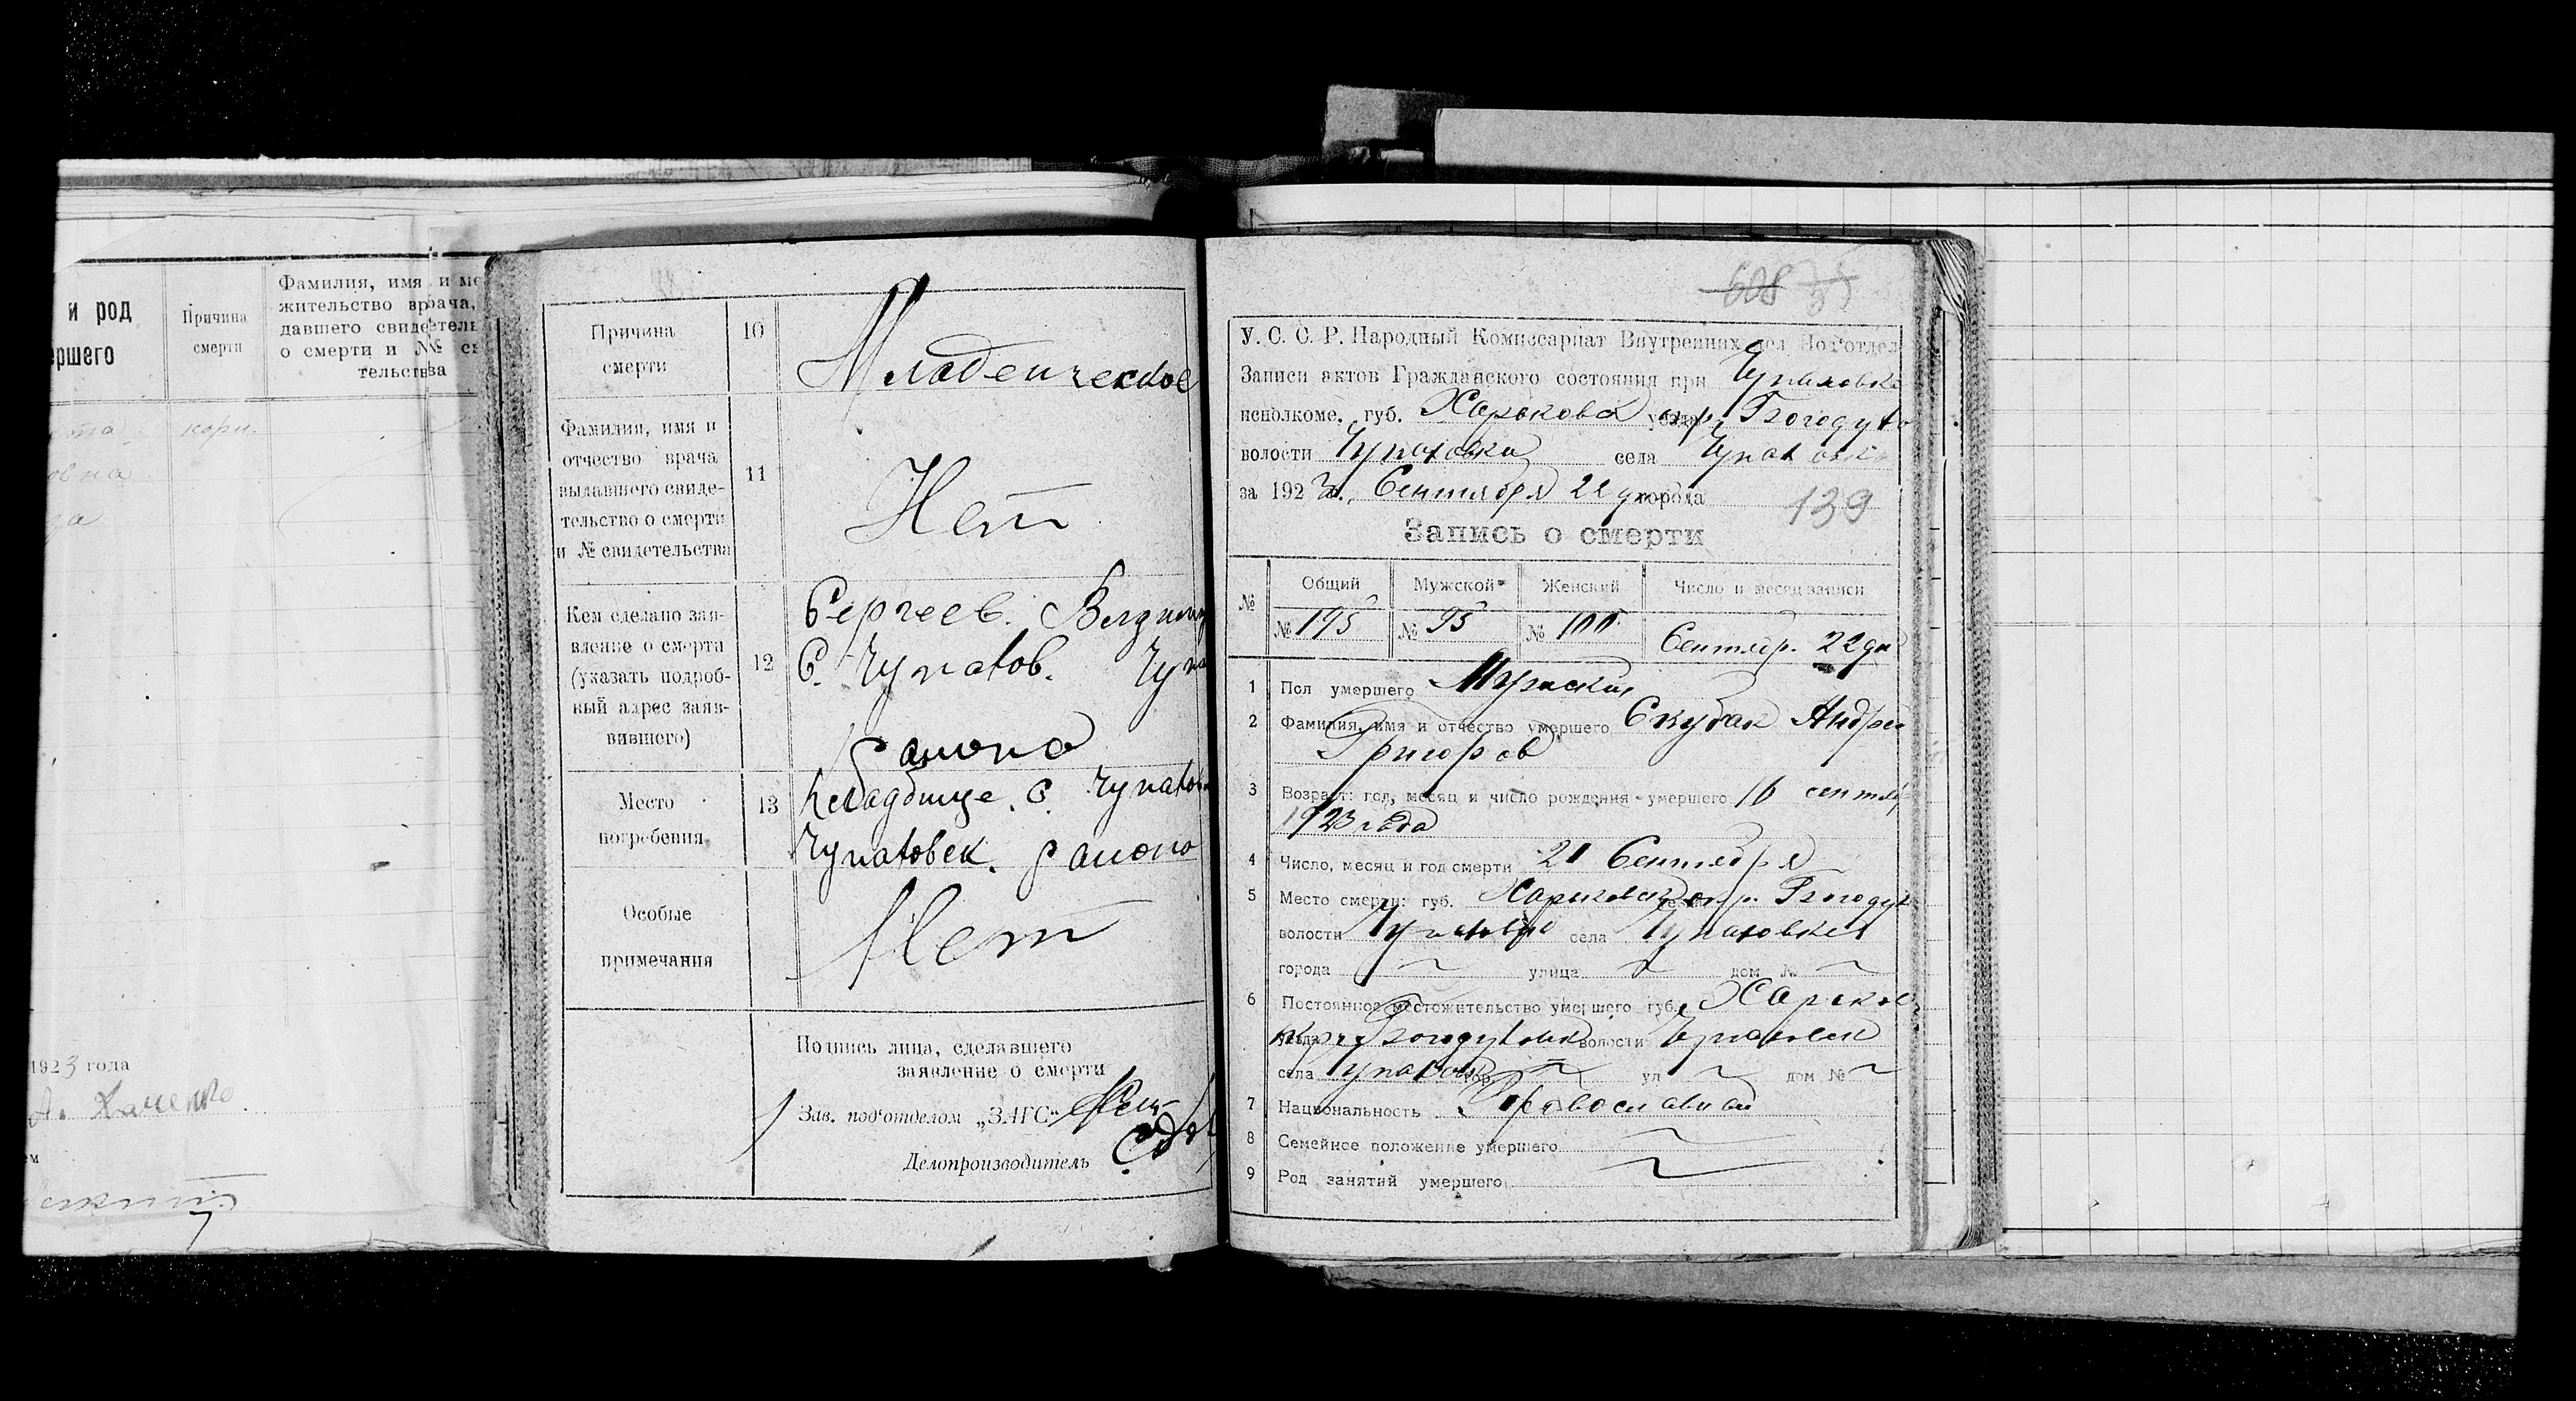 и род
ершего
Причина
смерти
Фамилия, имя и ме
жительство врача,
давшего свидетель
о смерти и № св
тельства
1923 года
Причина
смерти
10
Младенческое
Фамилия, имя и
отчество врача
выдавшего свиде-
тельство о смерти
и № свидетельства
11
Нет
Кем сделано зая-
вление о смерти
(указать подроб-
ный адрес заяв-
вившего)
12
Сергеев.
С. Чупахов. Чупа
района
Место
погребения
13
Кладбище. С. Чупахов
Чупаховск. района
Особые
примечания
Нет
Подпись лица, сделавшего
заявление о смерти
Зав. под'отделом „ЗАГС"
Делопроизводитель
608
У. С. С. Р. Народный Комиссариат Внутренних дел Под'отдел
Записи актов Гражданского состояния при Чупаховке
исполкоме. губ. Харькова окр. Богодухо
волости Чупаховки села Чупаховк
за 1923 г. Сентября 22 дн города
139
Запись о смерти
№ Общий Мужской Женский Число и месяц записи
№ 195 № 95 № 100 Сентябр. 22 дн
1 Пол умершего Мужский
2 Фамилия, имя и отчество умершего Скубак Андрей
Григоров
3 Возраст: год, месяц и число рождения умершего 16 сентяб
1923 года
4 Число, месяц и год смерти 21 Сентября
5 Место смерти: губ. Харьков окр. Богодух
волости села Чупаховке
города ~ улица ~ дом № ~
6 Постоянное местожительство умершего губ. Харьков
окр. Богодуховск волости Чупаховск
села Чупаховк гор. ~ ул ~ дом № ~
7 Национальность Православный
8 Семейное положение умершего ~
9 Род занятий умершего ~